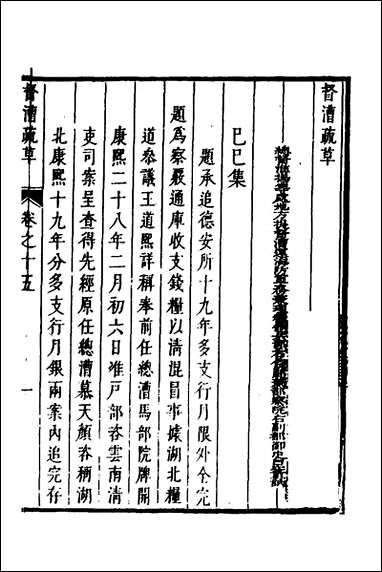 督漕疏草
己巳集
題承追德安所十九年多支行月限外全完
題為察嚴通庫收支錢糧以清混冒事據湖北糧
道參議王道熙詳稱奉前任總漕馬部院牌開
康熙二十八年二月初六日准戶部咨雲南清
吏司案呈查得先經原任總漕慕天顏咨稱湖
北康熙十九年分多支行月銀兩案內追完存
督漕疏草
卷之十五
一